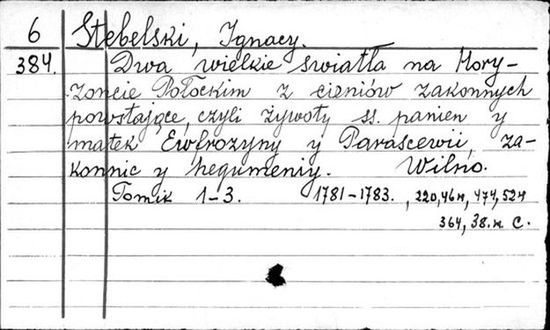 6 Stebelski, Ignacy.
384. Dwa wielkie światła na Hory-
zoncie Połockim z cieniów zakonnych
powstające, czyli żywoty ss. panien y
matek Ewfrozyny y Parascewii, za-
konnic y hegumeniy. Wilno.
Tomik 1-3. 1781-1783. , 220,46n, 474,524
364, 38.n. C.